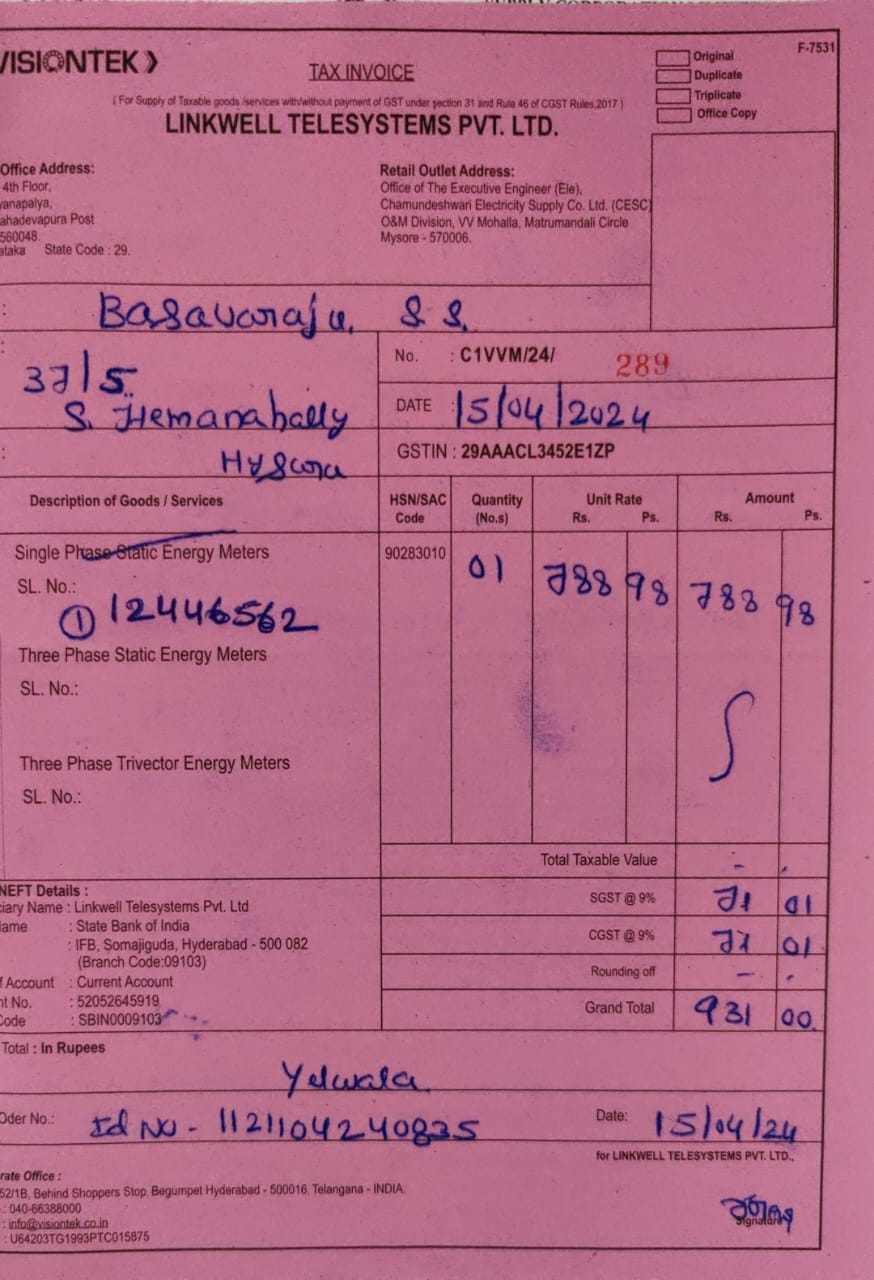 VISIONTEK
F-7531
TAX INVOICE
Original
Duplicate
Triplicate
Office Copy
( For Supply of Taxable goods /services with/without payment of GST under section 31 and Rule 46 of CGST Rules,2017 )
LINKWELL TELESYSTEMS PVT. LTD.
Office Address:
4th Floor,
yanapalya,
ahadevapura Post
560048.
ataka State Code : 29.
Retail Outlet Address:
Office of The Executive Engineer (Ele),
Chamundeshwari Electricity Supply Co. Ltd. (CESC)
O&M Division, VV Mohalla, Matrumandali Circle
Mysore - 570006.
: Basavaraju. S S.
:
37/5.
S. Hemanahally
:
No. : C1VVM/24/ 289
DATE : 15/04/2024
GSTIN : 29AAACL3452E1ZP
Description of Goods / Services HSN/SAC Code Quantity (No.s) Unit Rate Rs. Ps. Amount Rs. Ps.
Single Phase Static Energy Meters 90283010 01 788 98 788 98
SL. No.:
① 12446562
Three Phase Static Energy Meters
SL. No.:
Three Phase Trivector Energy Meters
SL. No.:
Total Taxable Value -
SGST @ 9% 71 01
CGST @ 9% 71 01
Rounding off -
Grand Total 931 00
NEFT Details :
ciary Name : Linkwell Telesystems Pvt. Ltd
ame : State Bank of India
: IFB, Somajiguda, Hyderabad - 500 082
(Branch Code:09103)
f Account : Current Account
nt No. : 52052645919
Code : SBIN0009103
Total : In Rupees
Yelwala
Oder No.: Id No - 1121104240835
Date: 15/04/24
for LINKWELL TELESYSTEMS PVT. LTD.,
Signature
rate Office :
52/1B, Behind Shoppers Stop, Begumpet Hyderabad - 500016, Telangana - INDIA.
.: 040-66388000
: info@visiontek.co.in
: U64203TG1993PTC015875